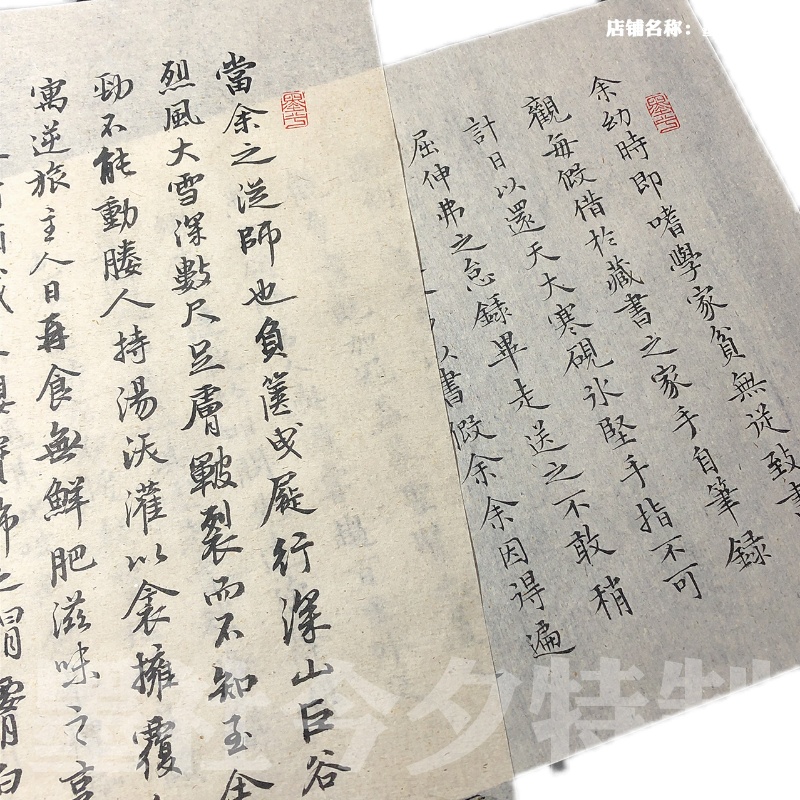 店铺名称：
余幼時即嗜學家貧無從致書
觀每假借於藏書之家手自筆錄
計日以還天大寒硯冰堅手指不可
屈伸弗之怠錄畢走送之不敢稍
以書假余余因得遍
當余之從師也負篋曳屣行深山巨谷
烈風大雪深數尺足膚皸裂而不知至舍
勁不能動媵人持湯沃灌以衾擁覆
寓逆旅主人日再食無鮮肥滋味之享
墨社今夕特制